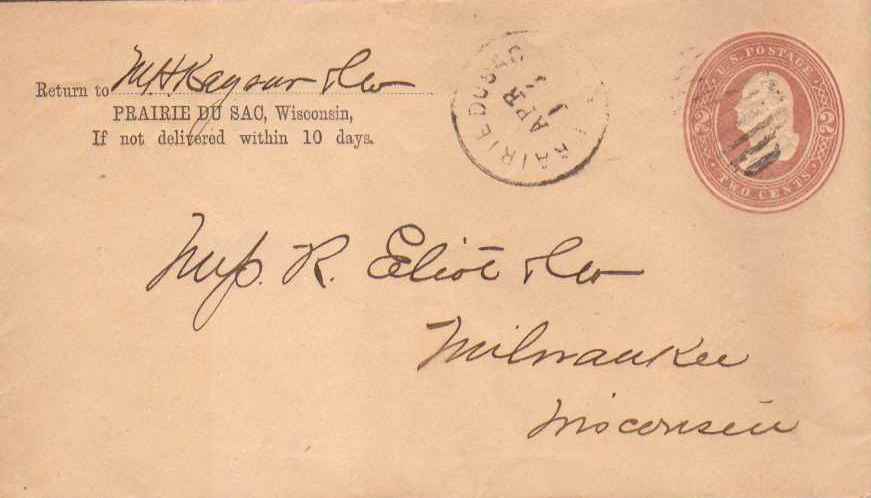 Return to M H Keysar & Co
PRAIRIE DU SAC, Wisconsin,
If not delivered within 10 days.
PRAIRIE DU SAC
APR
U.S. POSTAGE
2 2
TWO CENTS
R. Eliot & Co
Milwaukee
Wisconsin